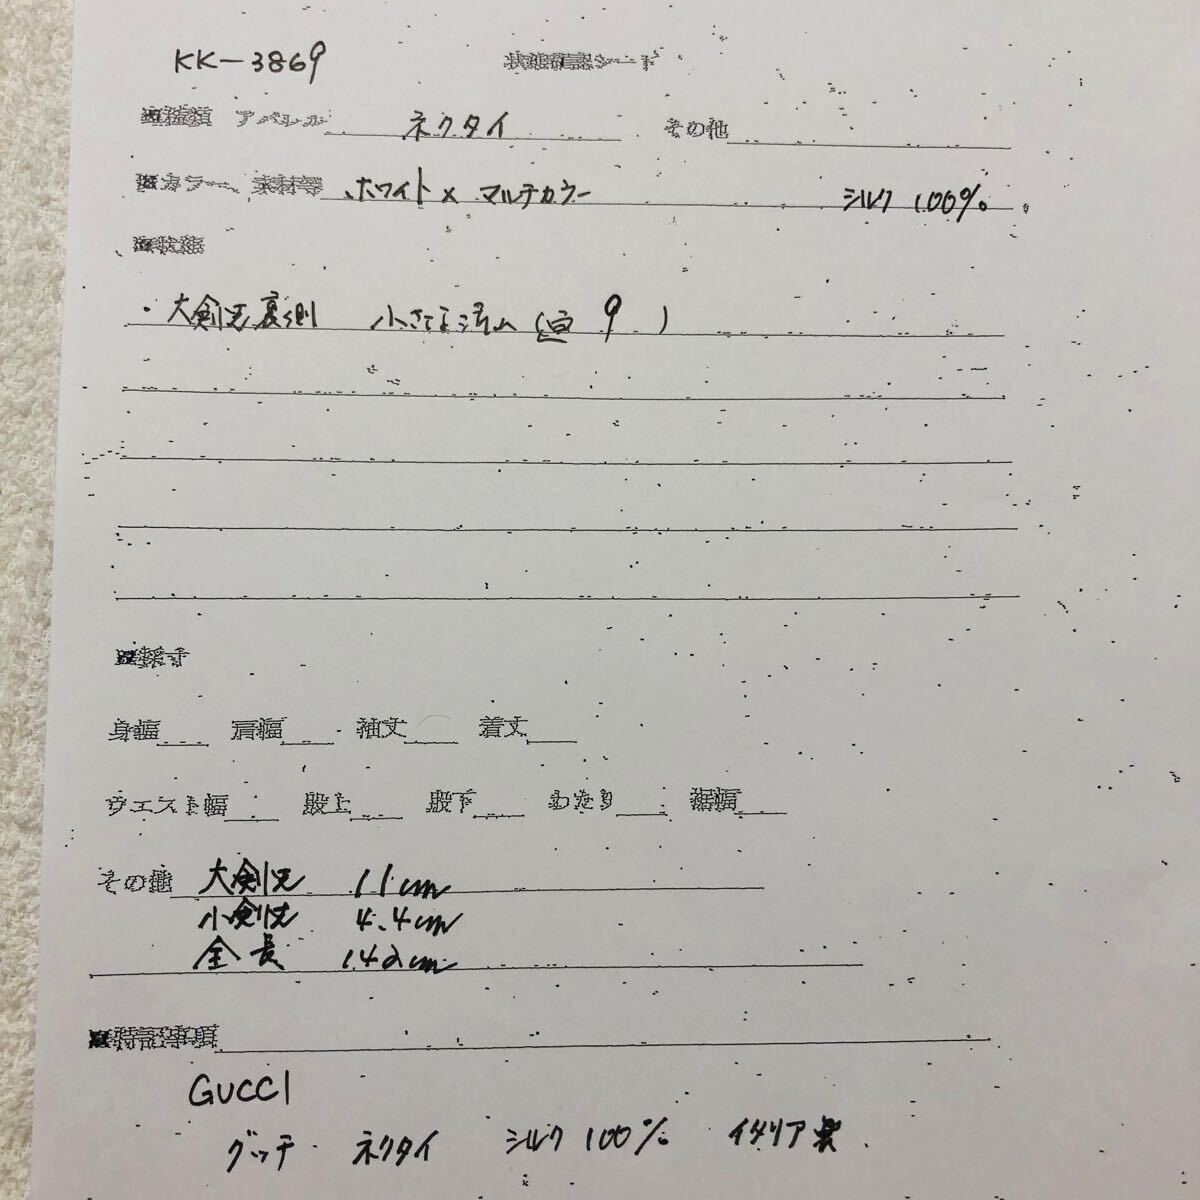 KK-3869 状態確認シート
■種類 アパレル ネクタイ その他
■カラー、素材等 ホワイト×マルチカラー シルク 100%
■状態
・大剣先裏側 小さなシミ ( 9 )
■採寸
身幅 肩幅 袖丈 着丈
ウエスト幅 股上 股下 わたり 裾幅
その他 大剣先 11cm
小剣先 4.4cm
全長 142cm
■特記事項
GUCCI
グッチ ネクタイ シルク 100% イタリア製